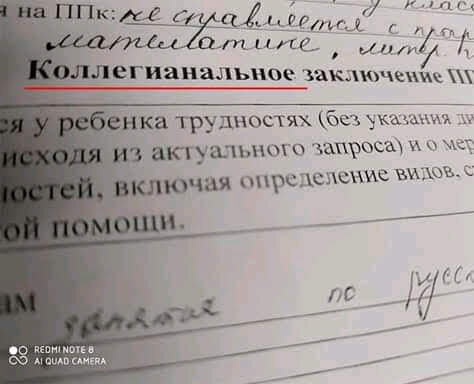 я на ППк: не справляется с прог
математике, литер.
Коллегианальное заключение ПП
ся у ребенка трудностях (без указания ди
исходя из актуального запроса) и о мер
ностей, включая определение видов, с
ой помощи.
ам занятия по русс
REDMI NOTE 8
AI QUAD CAMERA